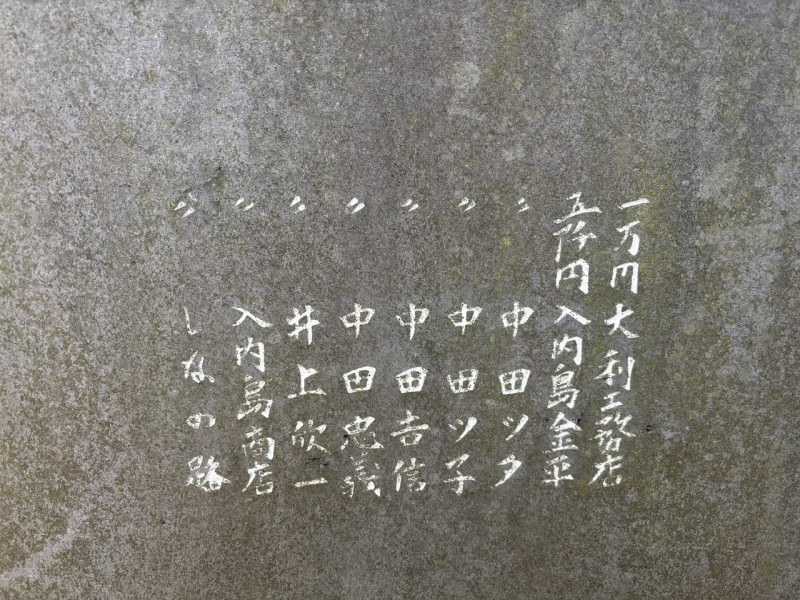 一万円 大利工務店
五阡円 入内島金平
〃 中田ツタ
〃 中田ツ子
〃 中田吉信
〃 中田忠義
〃 井上欣一
〃 入内島商店
〃 しなの路